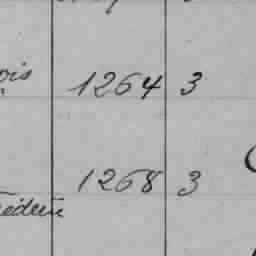 ois 1264 3
1268 3